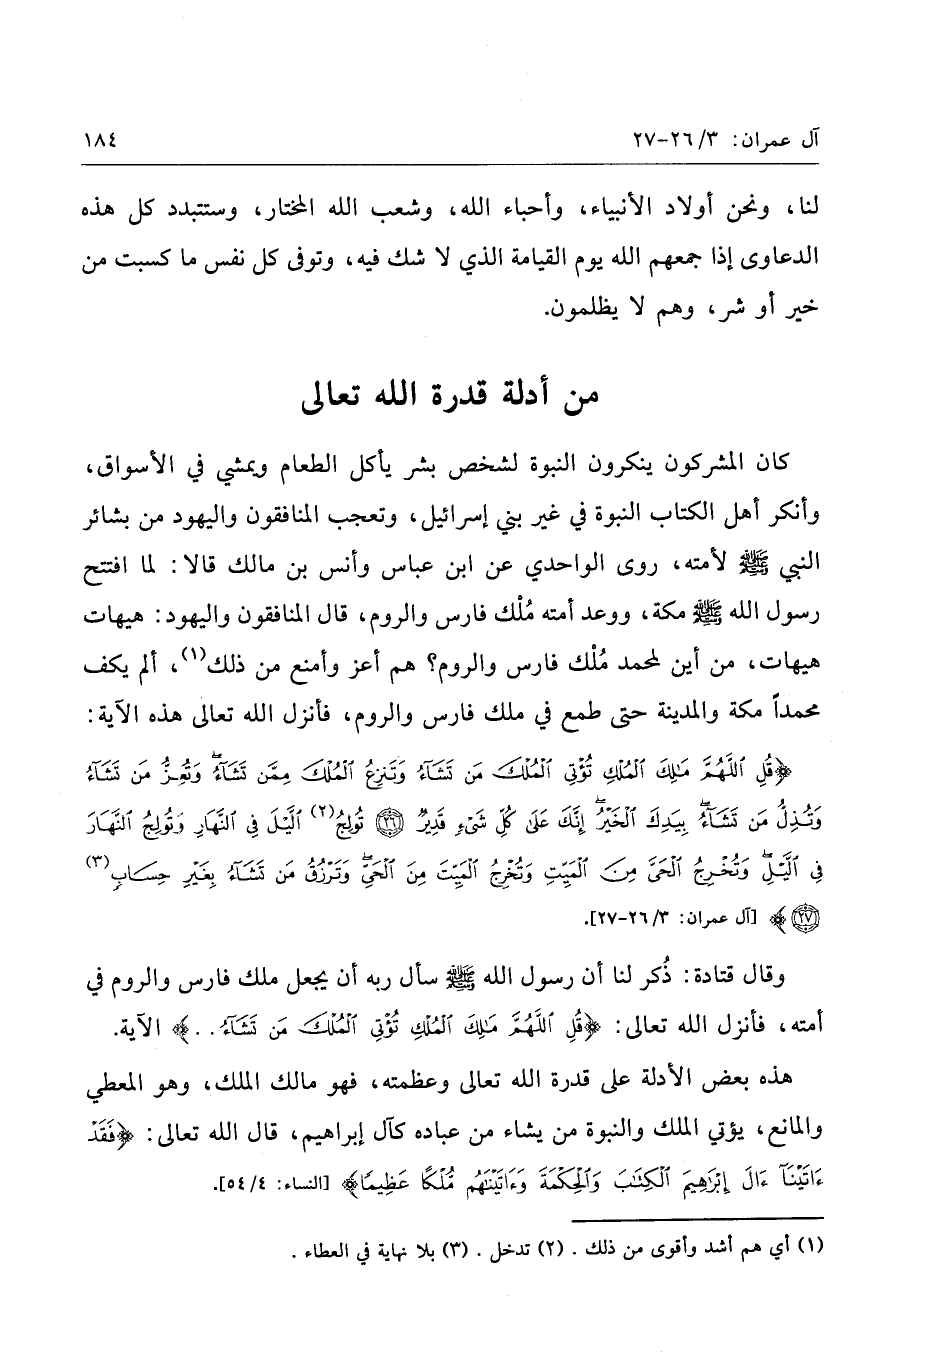 آل عمران: ٣/ ٢٦-٢٧ ١٨٤
لنا، ونحن أولاد الأنبياء، وأحباء الله، وشعب الله المختار، وستتبدد كل هذه
الدعاوى إذا جمعهم الله يوم القيامة الذي لا شك فيه، وتوفى كل نفس ما كسبت من
خير أو شر، وهم لا يظلمون.
من أدلة قدرة الله تعالى
كان المشركون ينكرون النبوة لشخص بشر يأكل الطعام ويمشي في الأسواق،
وأنكر أهل الكتاب النبوة في غير بني إسرائيل، وتعجب المنافقون واليهود من بشائر
النبي ﷺ لأمته، روى الواحدي عن ابن عباس وأنس بن مالك قالا: لما افتتح
رسول الله ﷺ مكة، ووعد أمته مُلْك فارس والروم، قال المنافقون واليهود: هيهات
هيهات، من أين لمحمد مُلْك فارس والروم؟ هم أعز وأمنع من ذلك(١)، ألم يكف
محمداً مكة والمدينة حتى طمع في ملك فارس والروم، فأنزل الله تعالى هذه الآية:
﴿قُلِ ٱللَّهُمَّ مَٰلِكَ ٱلْمُلْكِ تُؤْتِي ٱلْمُلْكَ مَن تَشَآءُ وَتَنزِعُ ٱلْمُلْكَ مِمَّن تَشَآءُۖ وَتُعِزُّ مَن تَشَآءُ
وَتُذِلُّ مَن تَشَآءُۖ بِيَدِكَ ٱلْخَيْرُۖ إِنَّكَ عَلَىٰ كُلِّ شَىْءٍ قَدِيرٌ ٢٦ تُولِجُ(٢) ٱلَّيْلَ فِي ٱلنَّهَارِ وَتُولِجُ ٱلنَّهَارَ
فِي ٱلَّيْلِۖ وَتُخْرِجُ ٱلْحَىَّ مِنَ ٱلْمَيِّتِ وَتُخْرِجُ ٱلْمَيِّتَ مِنَ ٱلْحَىِّۖ وَتَرْزُقُ مَن تَشَآءُ بِغَيْرِ حِسَابٍ(٣)
٢٧﴾ [آل عمران: ٣/ ٢٦-٢٧].
وقال قتادة: ذُكر لنا أن رسول الله ﷺ سأل ربه أن يجعل ملك فارس والروم في
أمته، فأنزل الله تعالى: ﴿قُلِ ٱللَّهُمَّ مَٰلِكَ ٱلْمُلْكِ تُؤْتِي ٱلْمُلْكَ مَن تَشَآءُ..﴾ الآية.
هذه بعض الأدلة على قدرة الله تعالى وعظمته، فهو مالك الملك، وهو المعطي
والمانع، يؤتي الملك والنبوة من يشاء من عباده كآل إبراهيم، قال الله تعالى: ﴿فَقَدْ
ءَاتَيْنَآ ءَالَ إِبْرَٰهِيمَ ٱلْكِتَٰبَ وَٱلْحِكْمَةَ وَءَاتَيْنَٰهُم مُّلْكًا عَظِيمًا﴾ [النساء: ٤/ ٥٤].
(١) أي هم أشد وأقوى من ذلك. (٢) تدخل. (٣) بلا نهاية في العطاء.